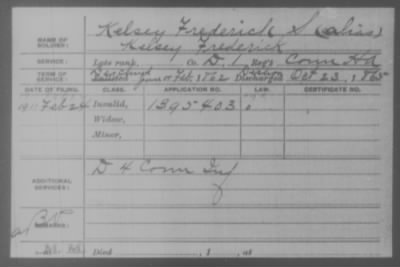 NAME OF SOLDIER: Kelsey Frederick S (alias)
Kelsey Frederick
SERVICE: Late rank, Co. D, 1 Reg't Conn HA
TERM OF SERVICE: Enlisted Feb, 1862 Discharged Oct 23, 1865
DATE OF FILING. CLASS. APPLICATION NO. LAW. CERTIFICATE NO.
1911 Feb 24 Invalid, 1395403
Widow,
Minor,
ADDITIONAL SERVICES: D 4 Conn Inf
REMARKS:
Died , 1 , at